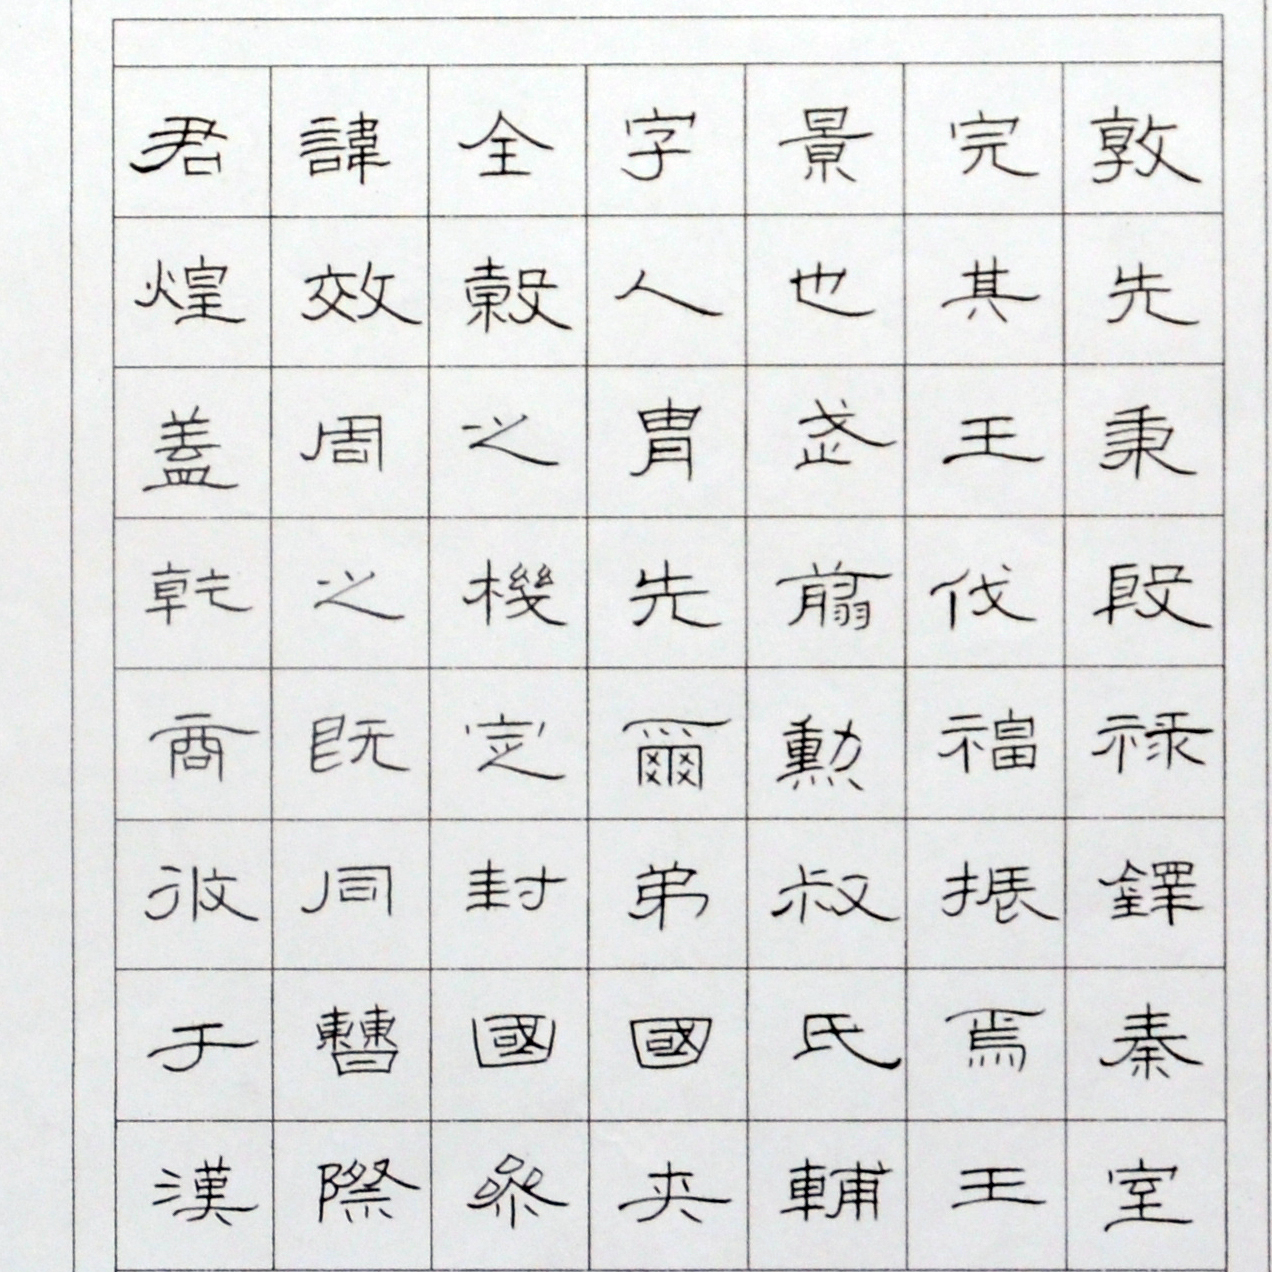 君諱全字景完敦
煌效穀人也其先
蓋周之胄武王秉
乾之機先翦伐殷
商既定爾勳福祿
攸同封弟叔振鐸
于曹國國氏焉秦
漢際參夾輔王室